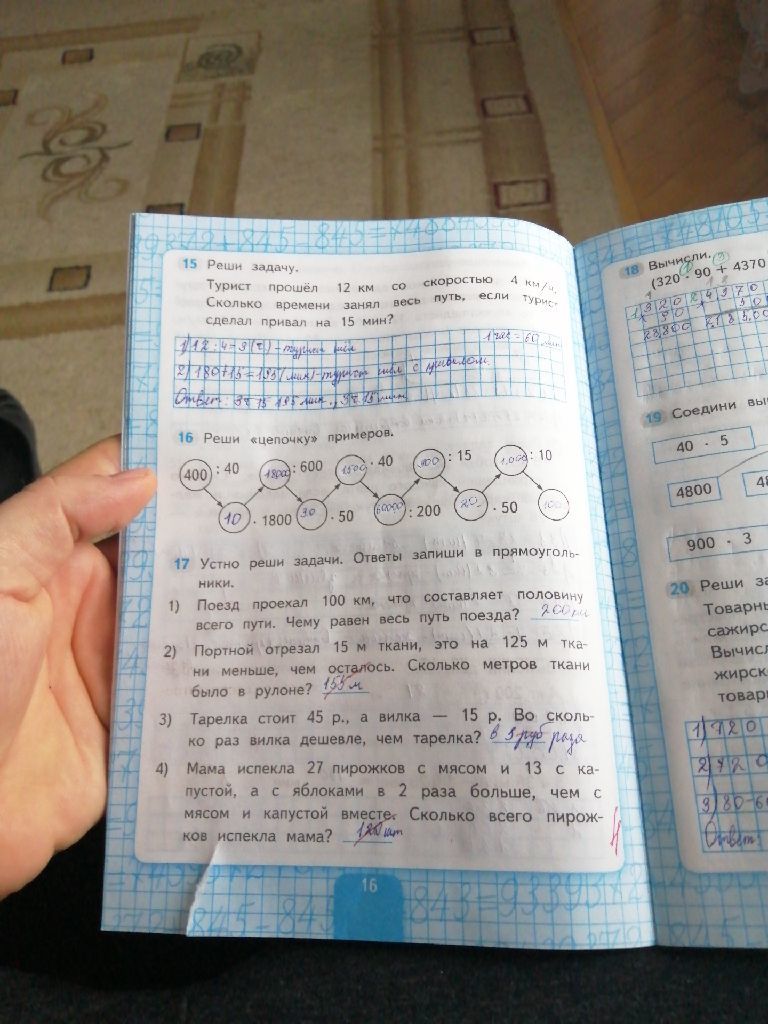 15 Реши задачу.
Турист прошёл 12 км со скоростью 4 км/ч.
Сколько времени занял весь путь, если турист
сделал привал на 15 мин?
1) 12 : 4 = 3 (ч) - турист шёл 1 час = 60 мин
2) 180 + 15 = 195 (мин) - турист шёл с привалом.
Ответ: 195 мин, 3ч 15 мин
16 Реши «цепочку» примеров.
400 : 40 18000 : 600 1500 · 40 300 : 15 1000 : 10
10 · 1800 30 · 50 60000 : 200 20 · 50 100
17 Устно реши задачи. Ответы запиши в прямоуголь-
ники.
1) Поезд проехал 100 км, что составляет половину
всего пути. Чему равен весь путь поезда? 200 км
2) Портной отрезал 15 м ткани, это на 125 м тка-
ни меньше, чем осталось. Сколько метров ткани
было в рулоне? 155 м
3) Тарелка стоит 45 р., а вилка — 15 р. Во сколь-
ко раз вилка дешевле, чем тарелка? в 3 руб раза
4) Мама испекла 27 пирожков с мясом и 13 с ка-
пустой, а с яблоками в 2 раза больше, чем с
мясом и капустой вместе. Сколько всего пирож-
ков испекла мама? 120 шт
4
16
18 Вычисли.
(320 · 90 + 4370
19 Соедини вы
40 · 5
4800
900 · 3
20 Реши за
Товарны
сажирс
Вычисл
жирско
товарн
1) 720
2) 720
3) 80-60
Ответ: